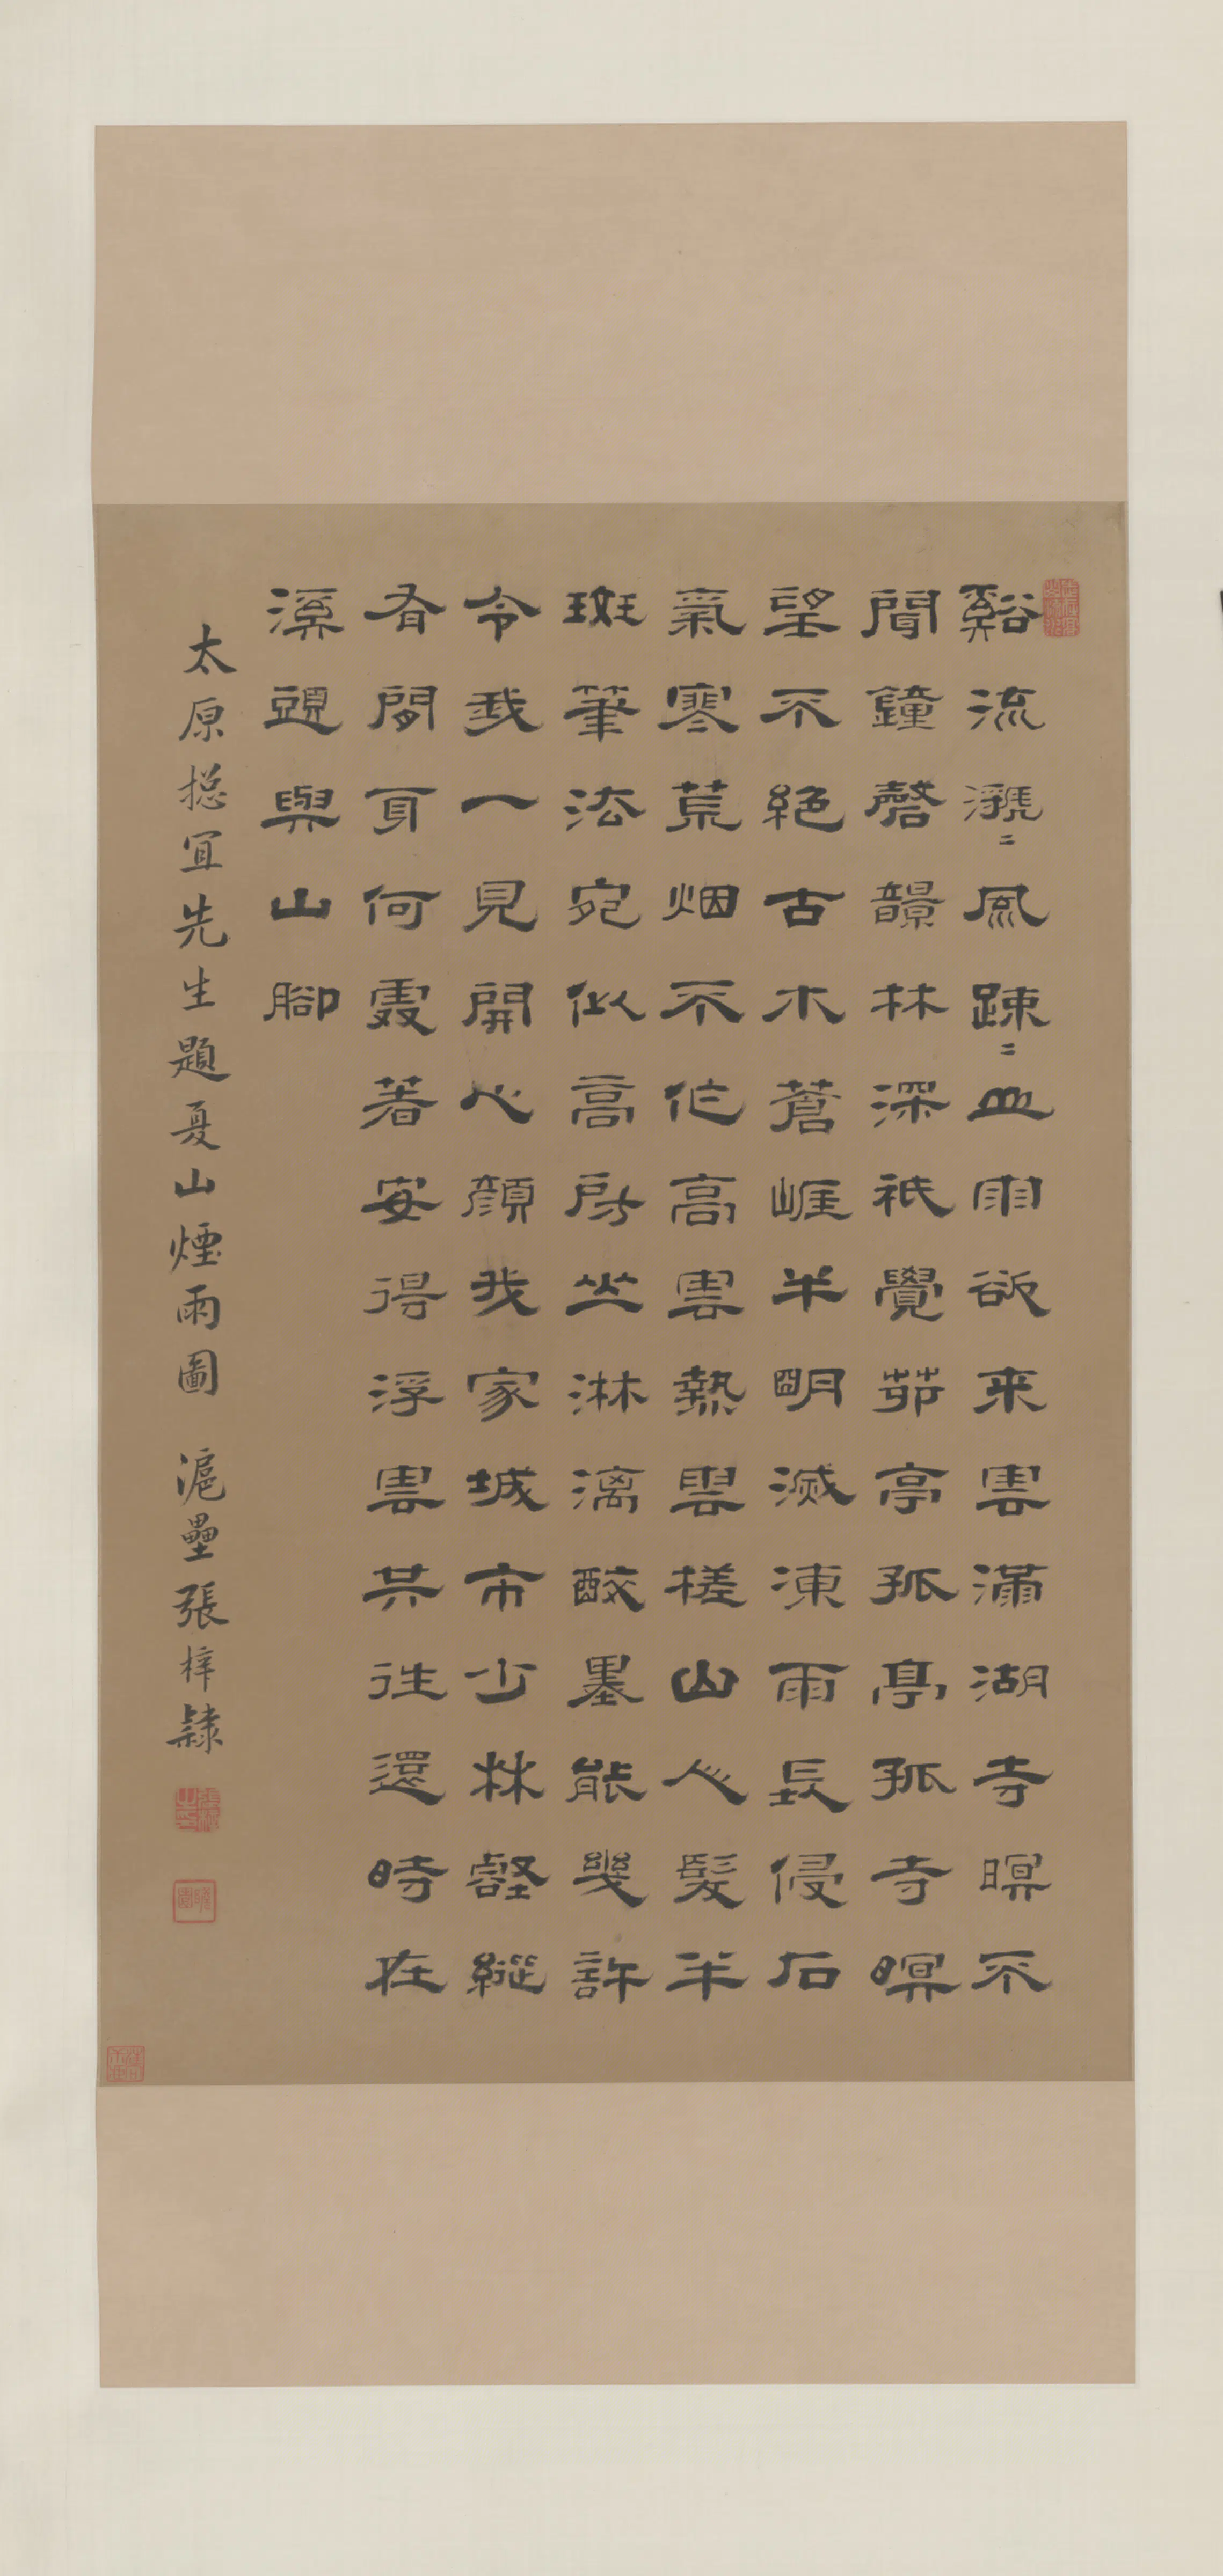 谿流瀌〻風踈〻血雨欲来雲滿湖寺暝不
聞鐘磬韻林深袛覺茆亭孤亭孤寺暝
望不絕古木蒼崖半明滅凍雨長侵石
氣寒荒烟不作高雲熱雲槎山人髮半
斑筆法宛似高房山淋漓醉墨能幾許
令我一見開心顏我家城市少林壑縱
有閒身何處著安得浮雲共往還時在
溪頭與山腳
太原揔宜先生題夏山煙雨圖　滬壘張梓隸